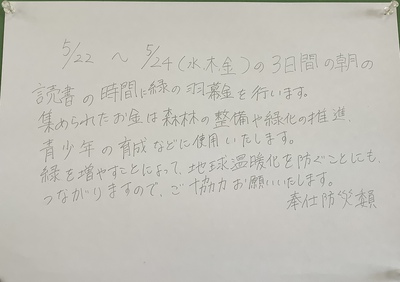 5/22 ～ 5/24(水木金)の3日間の朝の
読書の時間に緑の羽募金を行います。
集められたお金は森林の整備や緑化の推進、
青少年の育成などに使用いたします。
緑を増やすことによって、地球温暖化を防ぐことにも、
つながりますので、ご協力お願いいたします。
奉仕防災類